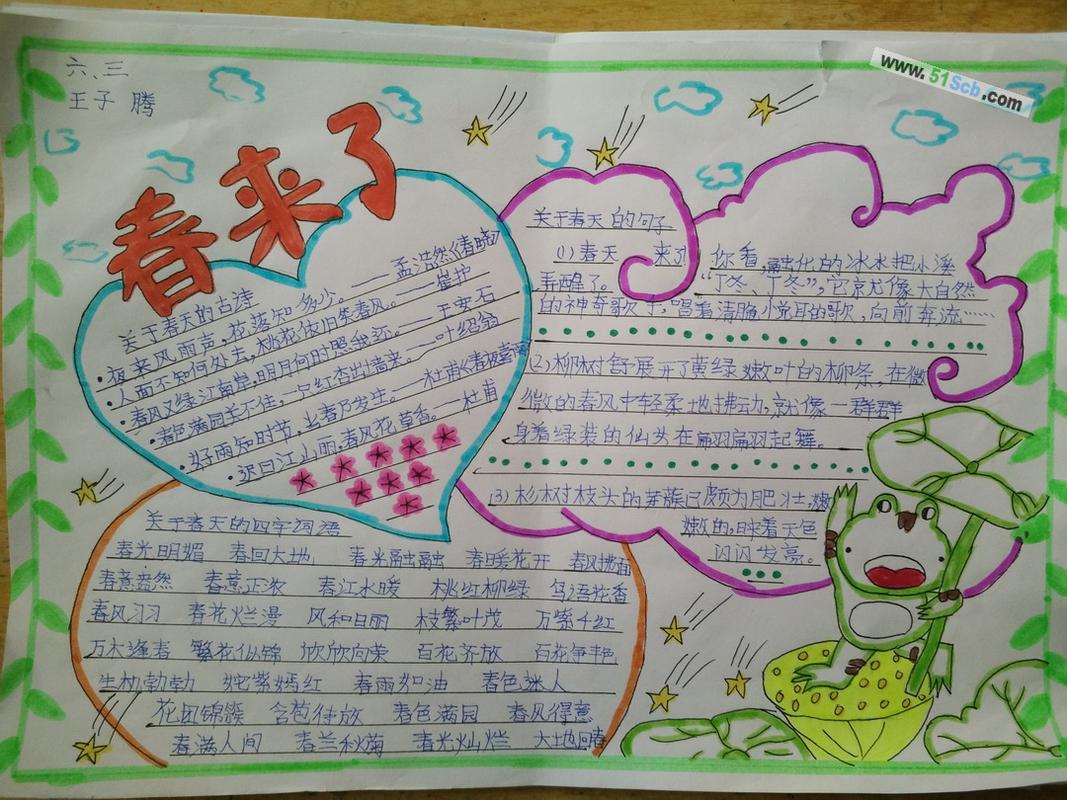 六、三
王子 腾
www.51Scb.com
春来了
关于春天的古诗
·夜来风雨声,花落知多少。——孟浩然《春晓》
·人面不知何处去,桃花依旧笑春风。——崔护
·春风又绿江南岸,明月何时照我还。——王安石
·春色满园关不住,一户红杏出墙来。——叶绍翁
·好雨知时节,当春乃发生。——杜甫《春夜喜雨》
·迟日江山丽,春风花草香。——杜甫
关于春天的句子
(1)春天 来了 你看,融化的冰水把小溪
弄醒了。 “丁冬、丁冬”,它就像大自然
的神奇歌手,唱着清脆悦耳的歌,向前奔流……
(2)柳树舒展开了黄绿嫩叶的柳条,在微
微的春风中轻柔地拂动,就像一群群
身着绿装的仙女在翩翩起舞。
(3)杉树枝头的芽簇已颇为肥壮,嫩
嫩的,映着天色
闪闪发亮。
关于春天的四字词语
春光明媚 春回大地 春光融融 春暖花开 春风拂面
春意盎然 春意正浓 春江水暖 桃红柳绿 鸟语花香
春风习习 春花烂漫 风和日丽 枝繁叶茂 万紫千红
万木逢春 繁花似锦 欣欣向荣 百花齐放 百花争艳
生机勃勃 姹紫嫣红 春雨如油 春色迷人
花团锦簇 含苞待放 春色满园 春风得意
春满人间 春兰秋菊 春光灿烂 大地回春